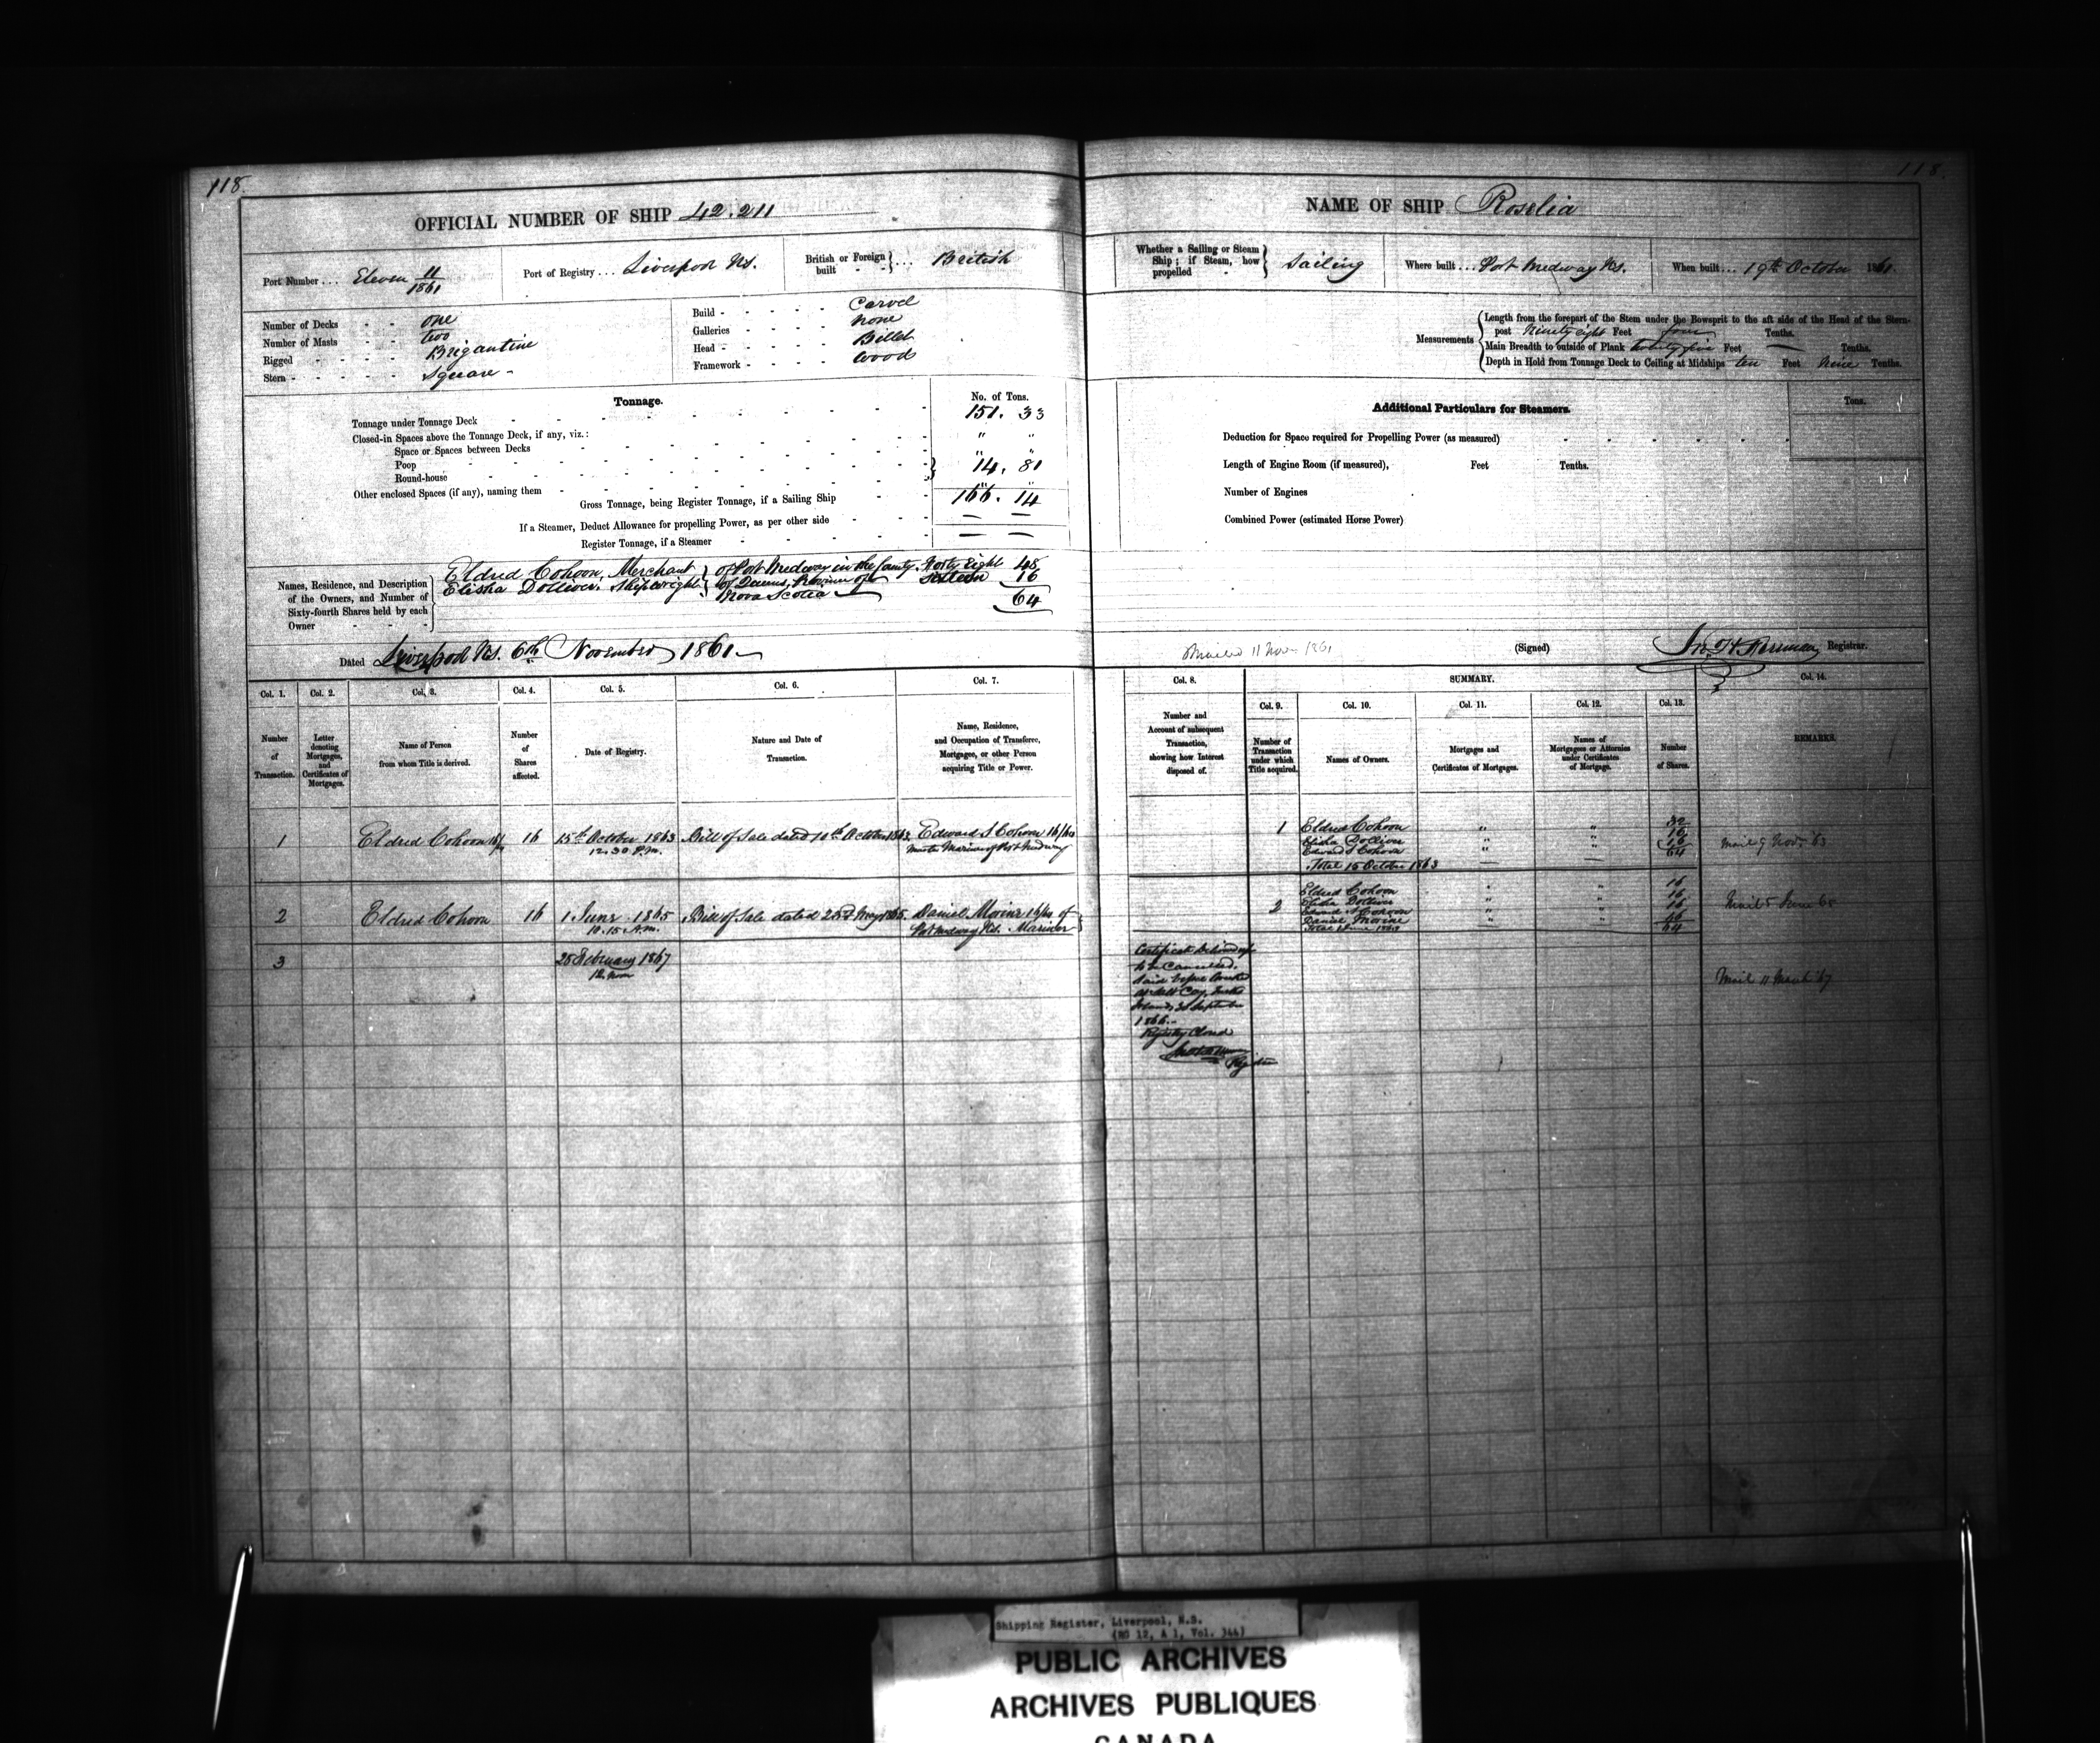 118.
118.
OFFICIAL NUMBER OF SHIP 42.211
NAME OF SHIP Roselia
Port Number ... Eleven 11/1861
Port of Registry ... Liverpool Ns.
British or Foreign built - - } ... British
Whether a Sailing or Steam Ship; if Steam, how propelled - } Sailing
Where built ... Port Medway Ns.
When built ... 19th October 1861
Number of Decks - - one
Number of Masts - - two
Rigged - - - - Brigantine
Stern - - - - - Square -
Build - - - - - Carvel
Galleries - - - - none
Head - - - - - Billet
Framework - - - - Wood
Measurements
Length from the forepart of the Stem under the Bowsprit to the aft side of the Head of the Stern-
post Ninety eight Feet four Tenths.
Main Breadth to outside of Plank twenty five Feet — Tenths.
Depth in Hold from Tonnage Deck to Ceiling at Midships ten Feet Nine Tenths.
Tonnage.
No. of Tons.
Tonnage under Tonnage Deck 151. 33
Closed-in Spaces above the Tonnage Deck, if any, viz.: " "
Space or Spaces between Decks " "
Poop
Round-house } 14. 81
Other enclosed Spaces (if any), naming them " "
Gross Tonnage, being Register Tonnage, if a Sailing Ship 166. 14
If a Steamer, Deduct Allowance for propelling Power, as per other side — —
Register Tonnage, if a Steamer — —
Additional Particulars for Steamers.
Tons.
Deduction for Space required for Propelling Power (as measured)
Length of Engine Room (if measured), Feet Tenths.
Number of Engines
Combined Power (estimated Horse Power)
Names, Residence, and Description
of the Owners, and Number of
Sixty-fourth Shares held by each
Owner - - -
Eldred Cohoon, Merchant } of Port Medway in the County Forty Eight 48
Elisha Dolliver, Shipwright } of Queens, Province of Sixteen 16
Nova Scotia — 64
Dated Liverpool Ns. 6th November 1861 —
Mailed 11 Nov 1861
(Signed)
Registrar.
Col. 1.
Col. 2.
Col. 3.
Col. 4.
Col. 5.
Col. 6.
Col. 7.
Col. 8.
SUMMARY.
Col. 9.
Col. 10.
Col. 11.
Col. 12.
Col. 13.
Col. 14.
Number of Transaction.
Letter denoting Mortgages, and Certificates of Mortgages.
Name of Person from whom Title is derived.
Number of Shares affected.
Date of Registry.
Nature and Date of Transaction.
Name, Residence, and Occupation of Transferee, Mortgagee, or other Person acquiring Title or Power.
Number and Account of subsequent Transaction, showing how Interest disposed of.
Number of Transaction under which Title acquired.
Names of Owners.
Mortgages and Certificates of Mortgages.
Names of Mortgagees or Attornies under Certificates of Mortgage.
Number of Shares.
REMARKS.
1 Eldred Cohoon 16 15th October 1863 Bill of Sale dated 10th October 1863 Edward S Cohoon 16/64
12.30 P.m. Master Mariner of Port Medway
1 Eldred Cohoon " " 32
Elisha Dolliver " " 16
Edward S Cohoon " " 16
64
Total 15 October 1863 — —
Mail 9 Nov. 63
2 Eldred Cohoon 16 1 June 1865 Bill of Sale dated 23d May 1865 Daniel Morine 16/64 of
10.15 A.m. Port Medway Ns. Mariner
2 Eldred Cohoon " " 16
Elisha Dolliver " " 16
Edward S Cohoon " " 16
Daniel Morine " " 16
Total 1 June 64
Mail 5 June 65
3 28 February 1867
12 Noon
Certificate Delivered up
to be Cancelled.
September
1866 -
Registry Closed
Registrar
Mail 11 March 67
Shipping Register, Liverpool, N.S.
(RG 12, A 1, Vol. 344)
PUBLIC ARCHIVES
ARCHIVES PUBLIQUES
CANADA